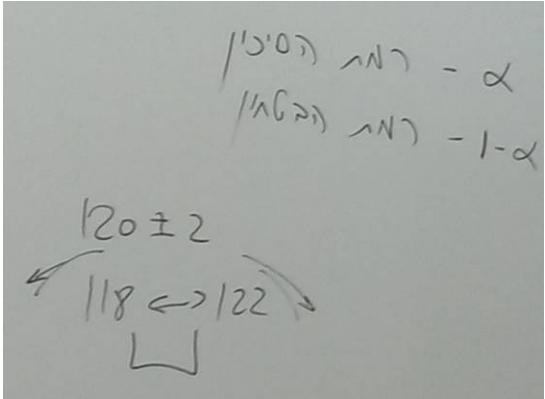 α - רמת הסיכון
1-α - רמת הבטחון
120 ± 2
118 ↔ 122